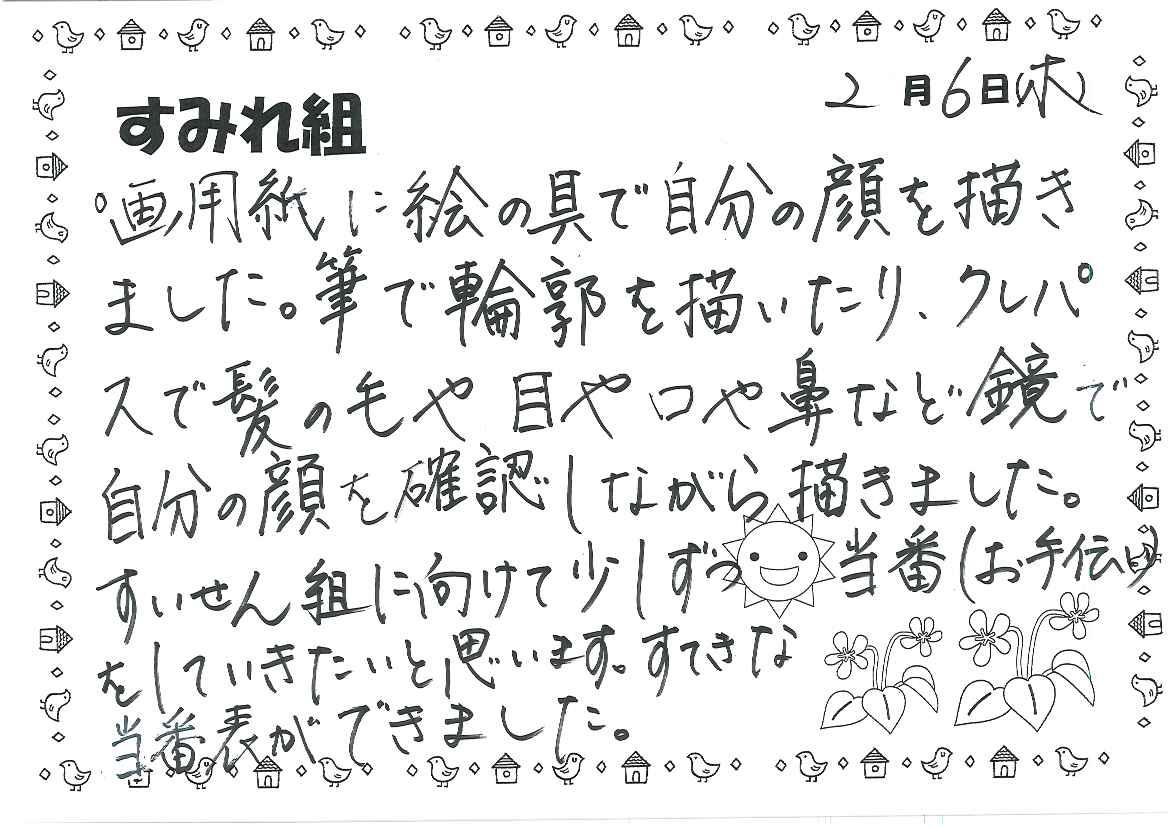 2月6日(木)
すみれ組
画用紙に絵の具で自分の顔を描き
ました。筆で輪郭を描いたり、クレパ
スで髪の毛や目や口や鼻など鏡で
自分の顔を確認しながら描きました。
すいせん組に向けて少しずつ当番(お手伝い)
をしていきたいと思います。すてきな
当番表ができました。